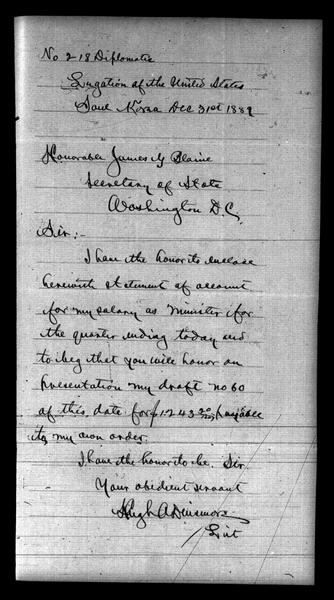 No 218 Diplomatic
Legation of the United States
Soul Korea Dec 31st 1889
Honorable James G Blaine
Secretary of State
Washington D.C.
Sir:-
I have the honor to enclose
herewith statement of account
for my salary as minister for
the quarter ending today and
to beg that you will honor on
presentation my draft no 60
of this date for $1243 payable
to my own order.
I have the honor to be. Sir
Your obedient servant
Hugh A Dinsmore